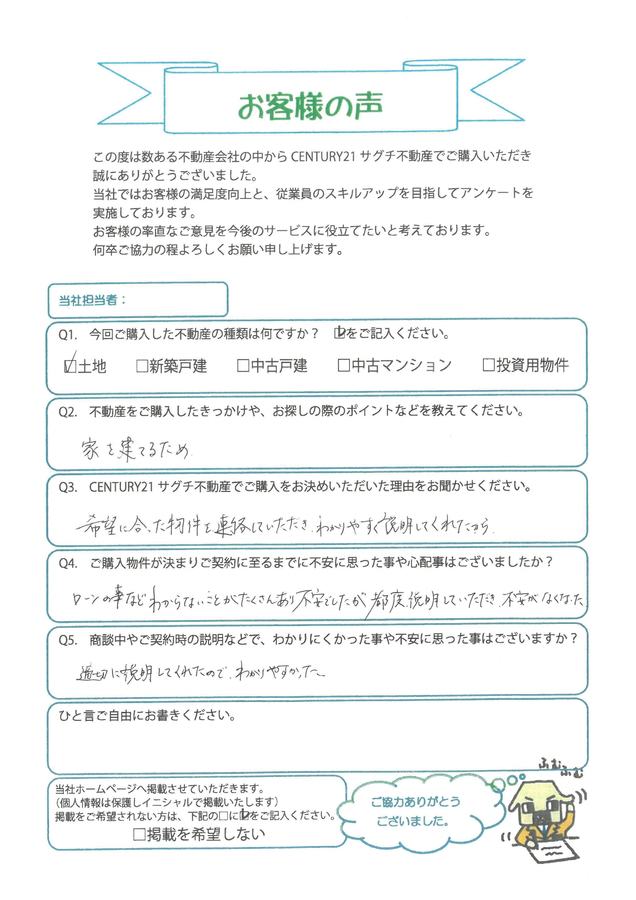 お客様の声
この度は数ある不動産会社の中から CENTURY21 サグチ不動産でご購入いただき
誠にありがとうございました。
当社ではお客様の満足度向上と、従業員のスキルアップを目指してアンケートを
実施しております。
お客様の率直なご意見を今後のサービスに役立てたいと考えております。
何卒ご協力の程よろしくお願い申し上げます。
当社担当者：
Q1. 今回ご購入した不動産の種類は何ですか？ ☑をご記入ください。
☑土地 □新築戸建 □中古戸建 □中古マンション □投資用物件
Q2. 不動産をご購入したきっかけや、お探しの際のポイントなどを教えてください。
家を建てるため
Q3. CENTURY21 サグチ不動産でご購入をお決めいただいた理由をお聞かせください。
希望に合った物件を連絡していただき、わかりやすく説明してくれたから
Q4. ご購入物件が決まりご契約に至るまでに不安に思った事や心配事はございましたか？
ローンの事などわからないことがたくさんあり不安でしたが都度説明していただき、不安がなくなった
Q5. 商談中やご契約時の説明などで、わかりにくかった事や不安に思った事はございますか？
適切に説明してくれたので、わかりやすかった
ひと言ご自由にお書きください。
ふむふむ
当社ホームページへ掲載させていただきます。
（個人情報は保護しイニシャルで掲載いたします）
掲載をご希望されない方は、下記の□に☑をご記入ください。
□掲載を希望しない
ご協力ありがとう
ございました。